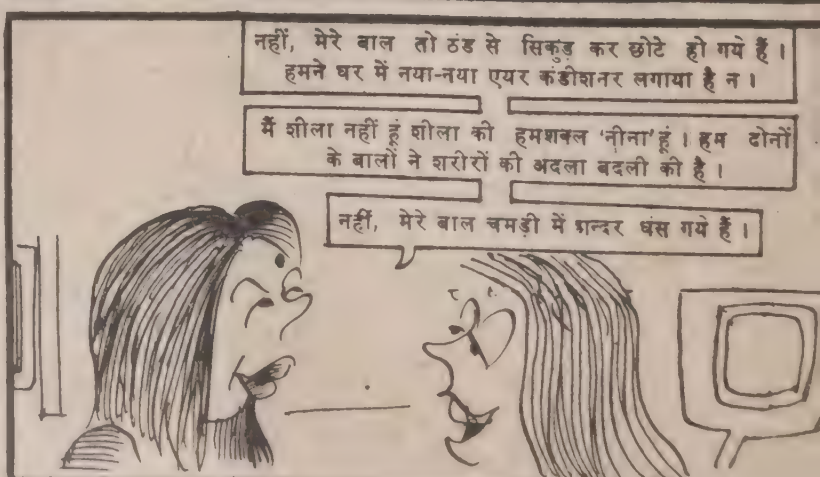 नहीं, मेरे बाल तो ठंड से सिकुड़ कर छोटे हो गये हैं।
हमने घर में नया-नया एयर कंडीशनर लगाया है न।
मैं शीला नहीं हूं शीला की हमशक्ल 'नीना' हूं। हम दोनों
के बालों ने शरीरों की अदला बदली की है।
नहीं, मेरे बाल चमड़ी में अन्दर धंस गये हैं।